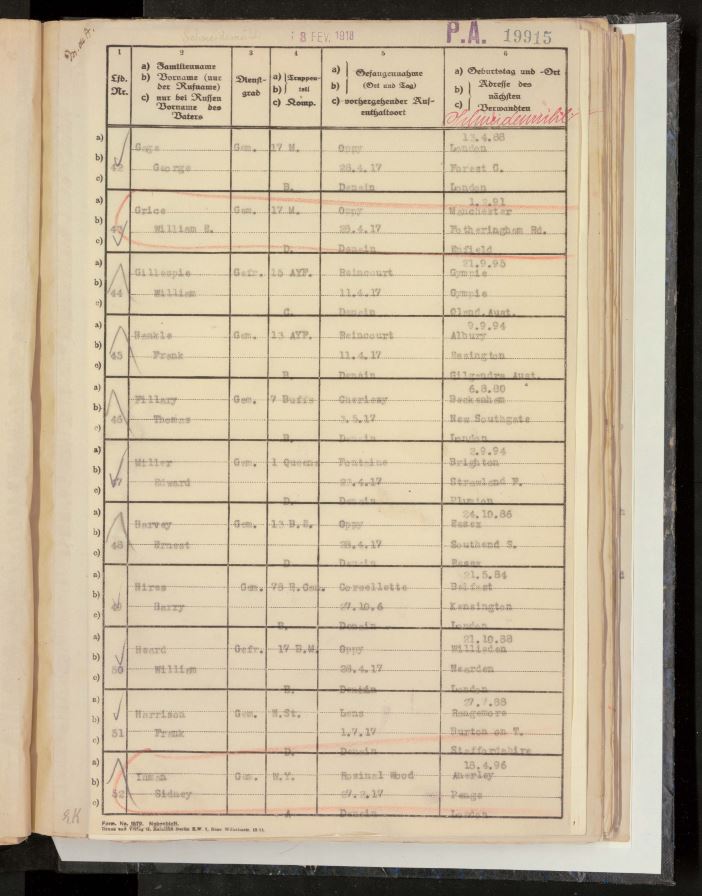 Schneidemühl
18 FEV. 1918
P.A. 19915
1 2 3 4 5 6
Lfd. Nr.
a) Familienname
b) Vorname (nur der Rufname)
c) nur bei Russen Vorname des Vaters
Dienst-grad
a) Truppen-
b) teil
c) Komp.
a) Gefangennahme
b) (Ort und Tag)
c) vorhergehender Auf-enthaltsort
a) Geburtstag und -Ort
b) Adresse des nächsten
c) Verwandten
Schneidemühl
13.4.88
a) Gage Gem. 17 M. Oppy London
b) 42 George 28.4.17 Forest G.
c) B. Denain London
1.2.91
a) Grice Gem. 17 M. Oppy Manchester
b) 43 William E. 28.4.17 Fotheringham Rd.
c) D. Denain Enfield
21.9.95
a) Gillespie Gefr. 15 AYF. Reincourt Gympie
b) 44 William 11.4.17 Gympie
c) C. Denain Qland.Aust.
9.9.94
a) Hankle Gem. 13 AYF. Reincourt Albury
b) 45 Frank 11.4.17
c) B. Denain Gilgandra Aust.
6.8.80
a) Fillary Gem. 7 Buffs Cherissy Beckenham
b) 46 Thomas 3.5.17 New Southgate
c) B. Denain London
2.9.94
a) Miller Gem. 1 Queens Fontaine Brighton
b) 47 Edward 23.4.17
c) D. Denain
24.10.86
a) Harvey Gem. 13 Oppy Essex
b) 48 Ernest 28.4.17 Southend S.
c) D. Denain Essex
21.5.84
a) Hires Gem. 78 Corsellette Belfast
b) 49 Harry 27.10.6 Kensington
c) Denain London
21.10.88
a) Heard Gefr. 17 Oppy Willisden
b) 50 William 28.4.17 Nearden
c) Denain London
27.7.88
a) Harrison Gem. N.St. Lens Rangemore
b) 51 Frank 1.7.17 Burton on T.
c) D. Denain Staffordshire
18.4.96
a) Inman Gem. W.Y. Rosinal Wood Anerley
b) 52 Sidney 27.2.17 Penge
c) A Denain London
Form. No. 1679. Nebenheft.